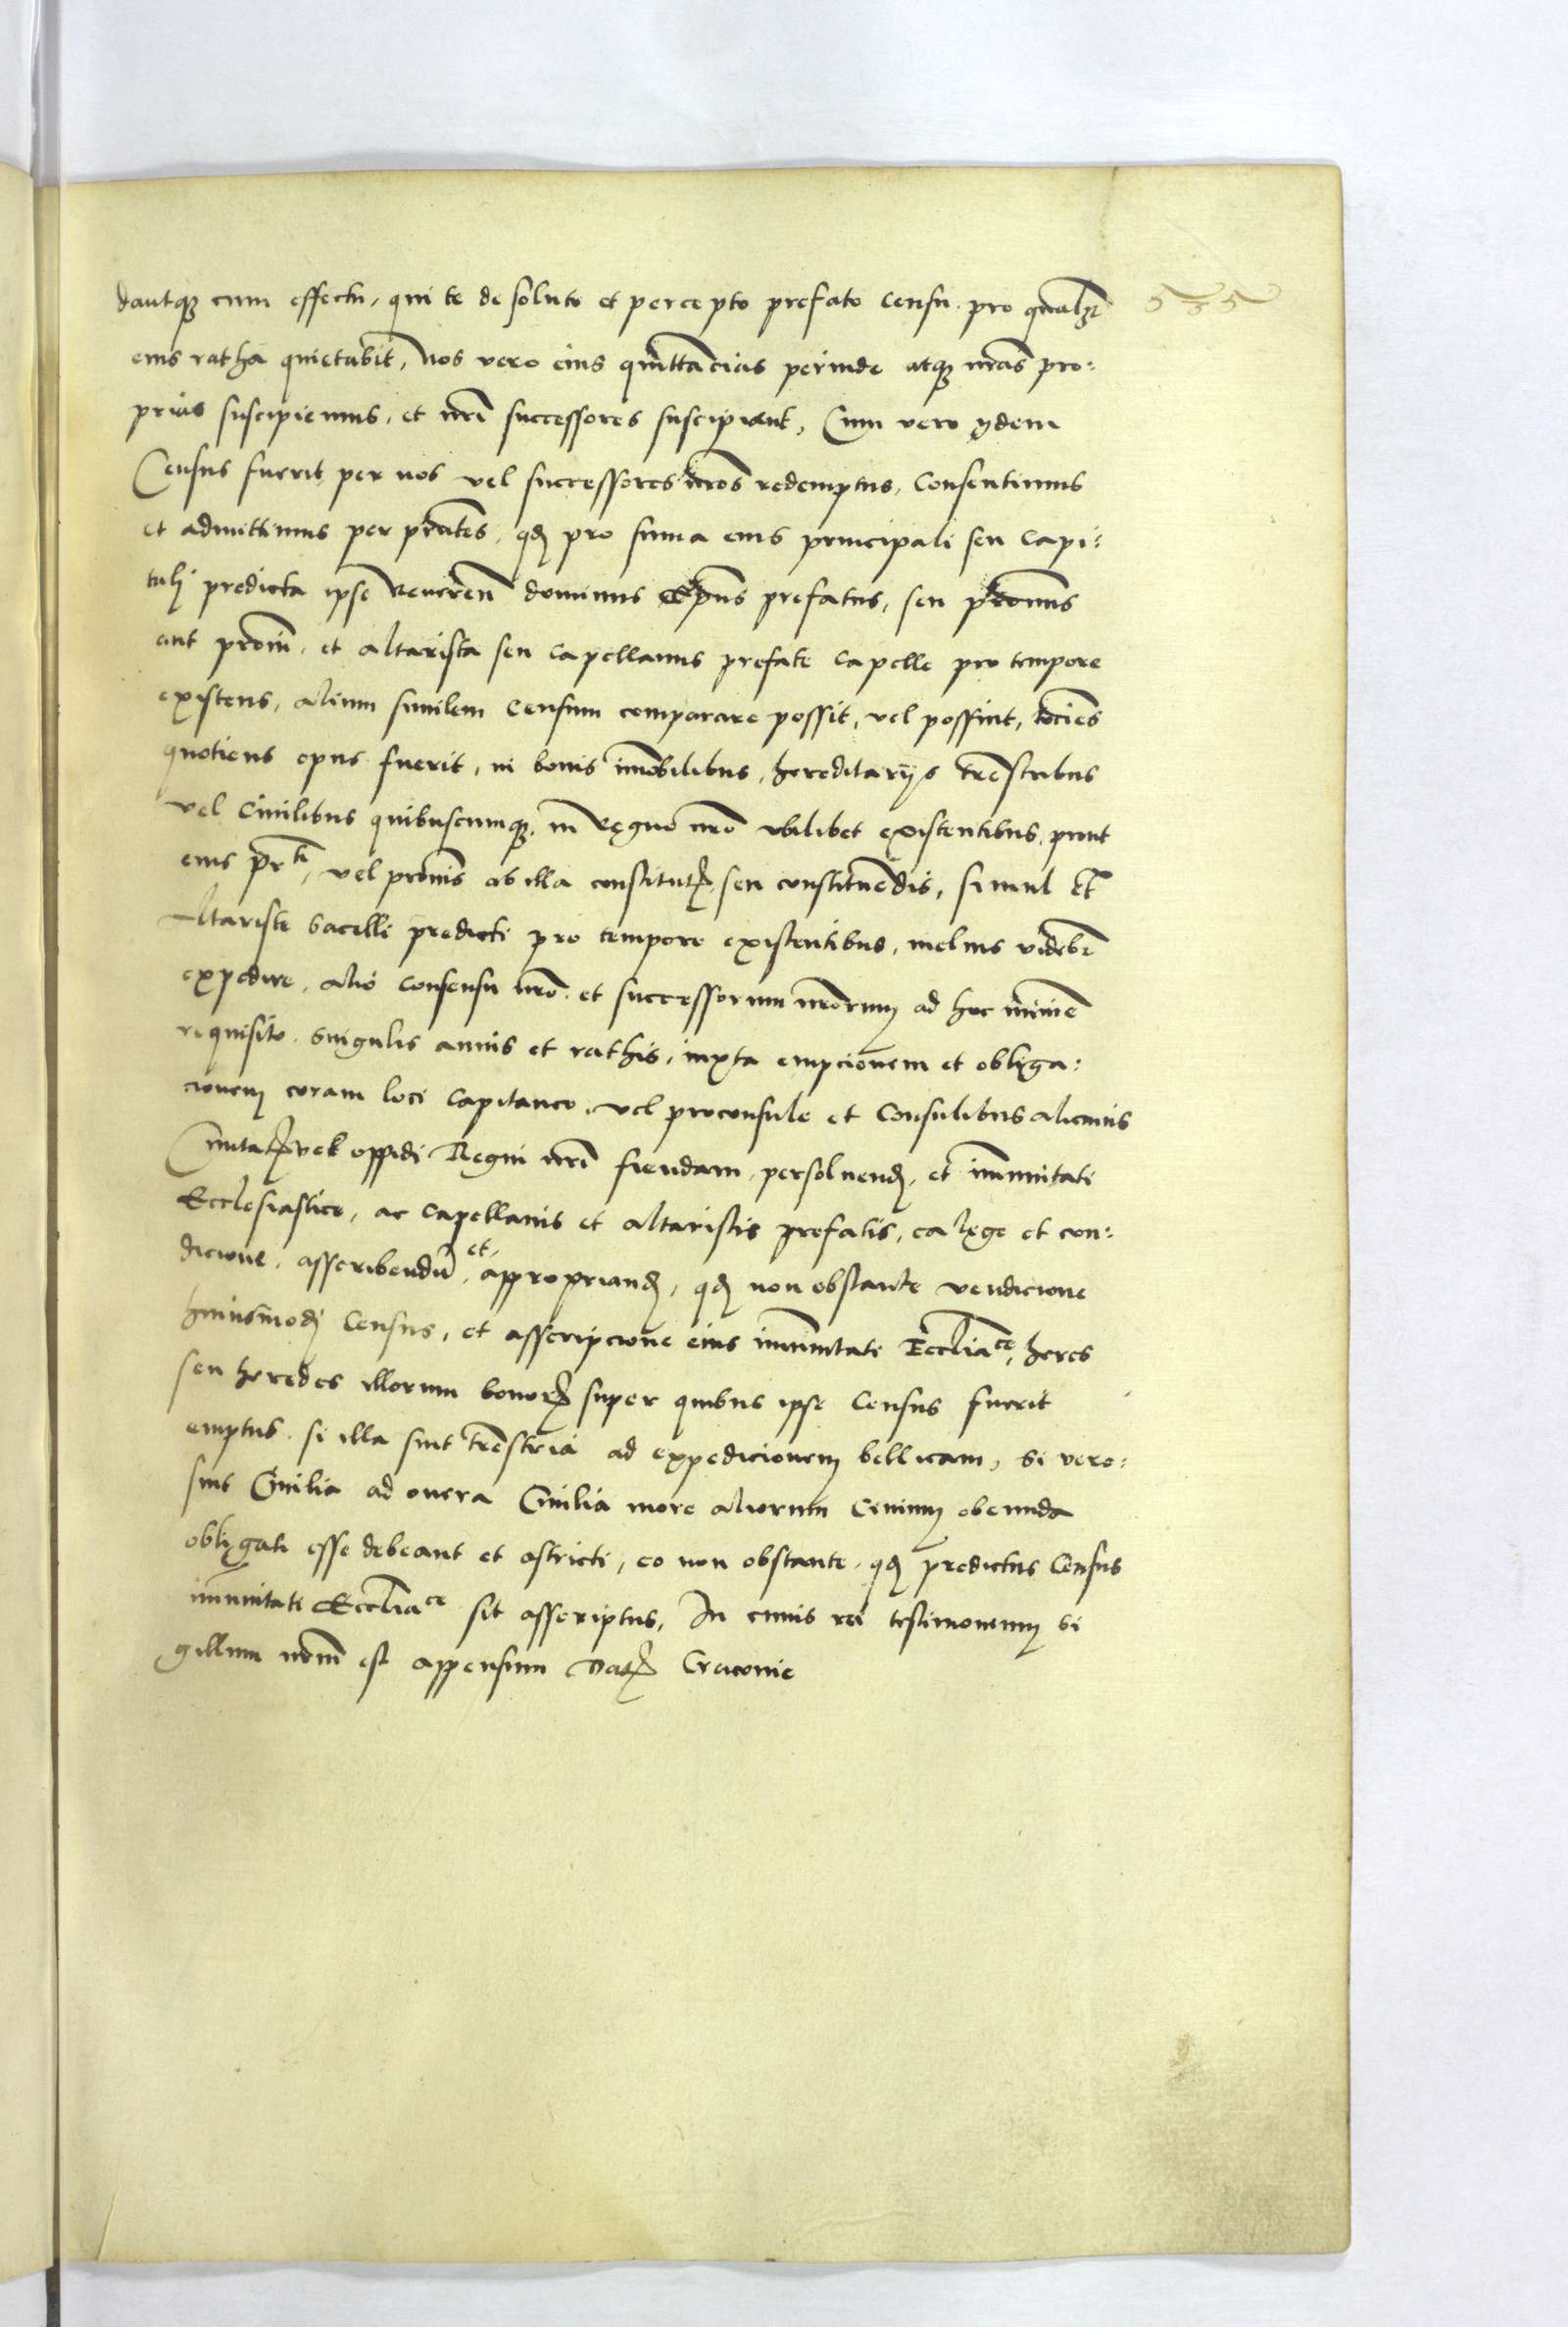 dantq₃ cum effectu, qui te de soluto et percepto prefato Censu pro qualꝫt 555
eius ratha quietabit, Nos vero eius quittancias perinde atq₃ nr̃as pro:
prias suscipiemus, et nr̃i successores suscipient, Cum vero ydem
Census fuerit per nos vel successores nr̃os redemptus, Consentimus
et admittimus per pñtes, qđ pro suma eius principali seu Capi:
tali predicta ipse Reueren̄ dominus Ep̃us prefatus, seu patronus
aut patroni, et altarista seu capellanus prefate Capelle pro tempore
existens, alium similem Censum comparare possit, vel possint, tocies
quotiens opus fuerit, in bonis im̄obilibus, hereditarijs tr̃estribus
vel Ciuilibus quibuscumq₃, in Regno nr̃o vbilibet existentibus, prout
eius pr̃ti, vel pronis ab illa constitut̨ seu constituendis, simul et
Altariste Sacelli predicti pro tempore existentibus, melius videbit̃
expedire, alio consensu nr̃o et successorum nr̃orum ad hoc minime
requisito, singulis annis et rathis, iuxta empcionem et obliga:
cionem coram loci Capitaneo, vel proconsule et Consulibus alicuius
Ciuitat̨ vel oppidi Regni nr̃i fiendam, persoluend̨, et im̄unitati
Ecclesiastice, ac capellanis et altaristis prefatis, ea lege et con:
dicione, asscribendũ et appropriand̨, qđ non obstante vendicione
huiusmodj Census, et asscripcione eius im̄unitati Eccl̃iace, heres
seu heredes illorum bonor̨ super quibus ipse Census fuerit
emptus, si illa sint tr̃estria ad expedicionem bellicam, si vero:
sint Ciuilia ad onera Ciuilia more aliorum Ciuium obeunda
obligati esse debeant et astricti, eo non obstante, qđ predictus Census
im̄unitati Eccl̃iace sit asscriptus, In cuius rei testimonium si
gillum nr̃m est appensum Dat̨ Cracouie